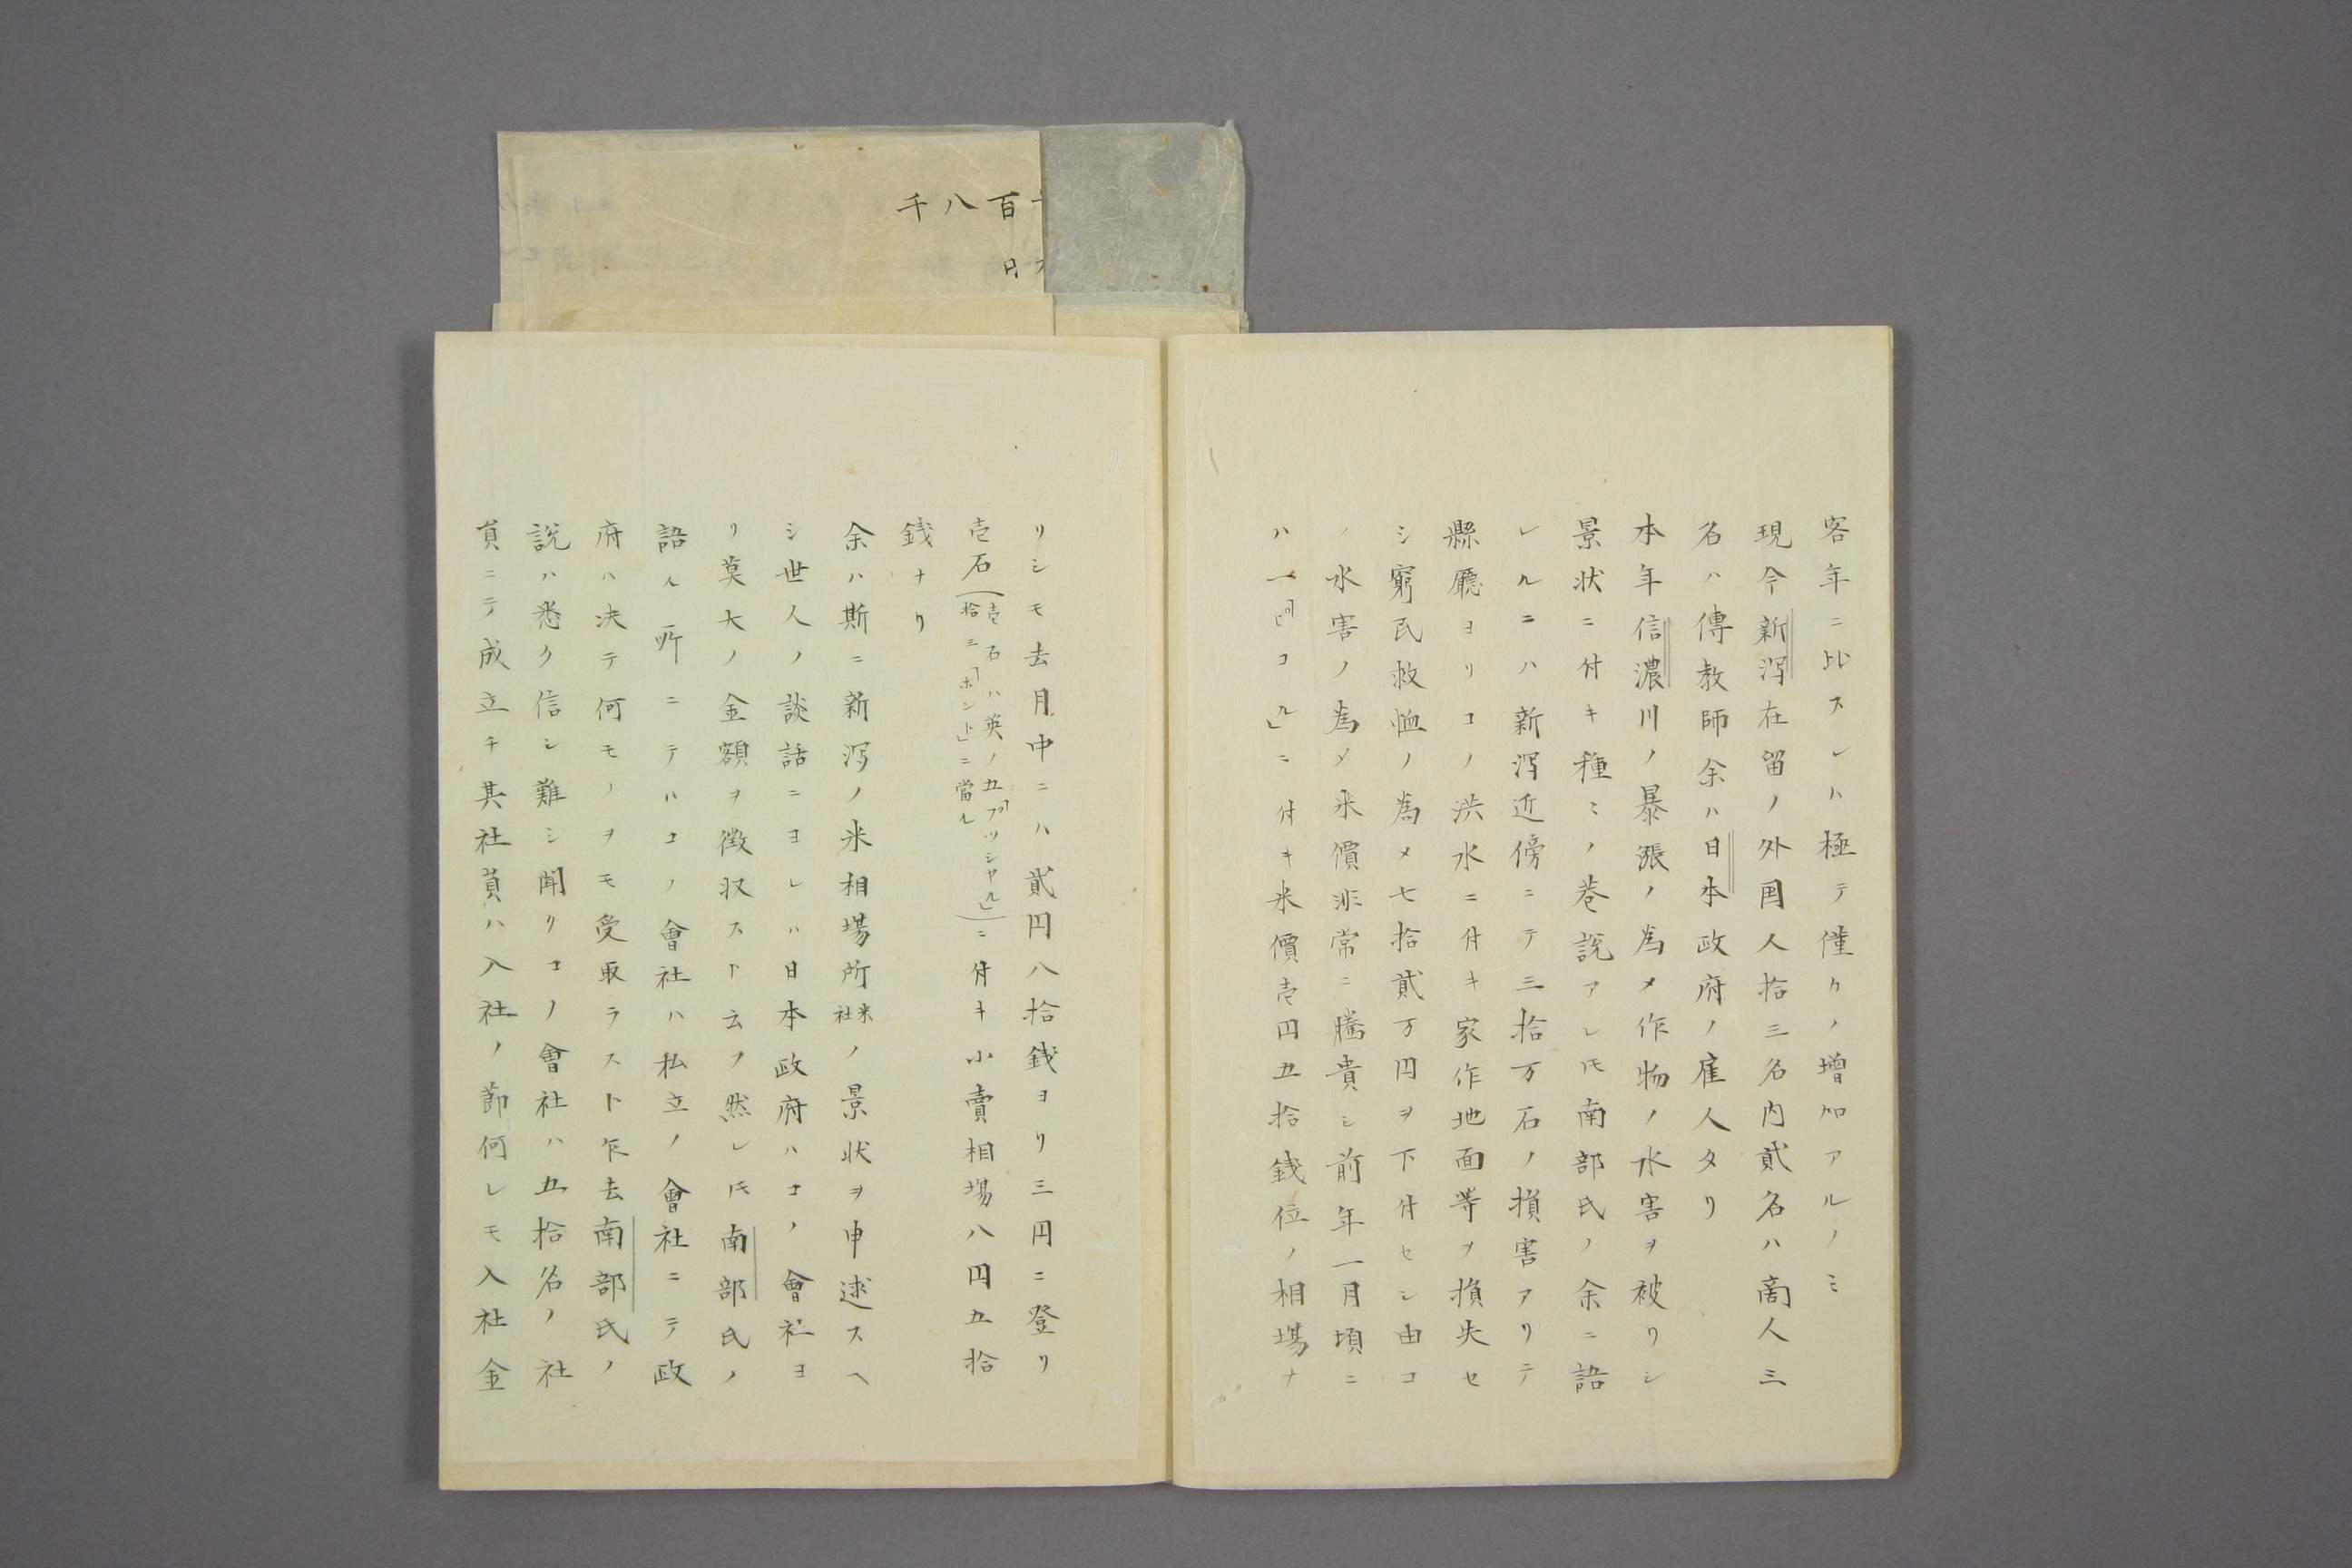 百八千
月
客年ニ比スレハ極テ僅カノ增加アルノミ
現今新潟在留ノ外国人拾三名内貳名ハ商人三
名ハ傳教師余ハ日本政府ノ雇人タリ
本年信濃川ノ暴漲ノ為メ作物ノ水害ヲ被リシ
景状ニ付キ種〻ノ巷説アレ𪜈南部氏ノ余ニ語
レルニハ新潟近傍ニテ三拾万石ノ損害アリテ
縣廳ヨリコノ洪水ニ付キ家作地面等ヲ損失セ
シ窮民救恤ノ為メ七拾貳万円ヲ下付セシ由コ
ノ水害ノ為メ米價非常ニ騰貴シ前年一月頃ニ
ハ一「コル」ニ付キ米價壱円五拾銭位ノ相場ナ
リシモ去月中ニハ貳円八拾銭ヨリ三円ニ登リ
壱石(壱石ハ英ノ五「ブッシヤル」拾三「ホント」ニ當ル)ニ付キ小賣相場八円五拾
銭ナリ
余ハ斯ニ新潟ノ米相場所米社ノ景状ヲ申述スヘ
シ世人ノ談話ニヨレハ日本政府ハコノ會社ヨ
リ莫大ノ金額ヲ徴収スト云フ然レ𪜈南部氏ノ
語ル所ニテハコノ會社ハ私立ノ會社ニテ政
府ハ决テ何モノヲモ受取ラスト乍去南部氏ノ
説ハ悉ク信シ難シ聞クコノ會社ハ五拾名ノ社
員ニテ成立チ其社員ハ入社ノ節何レモ入社金